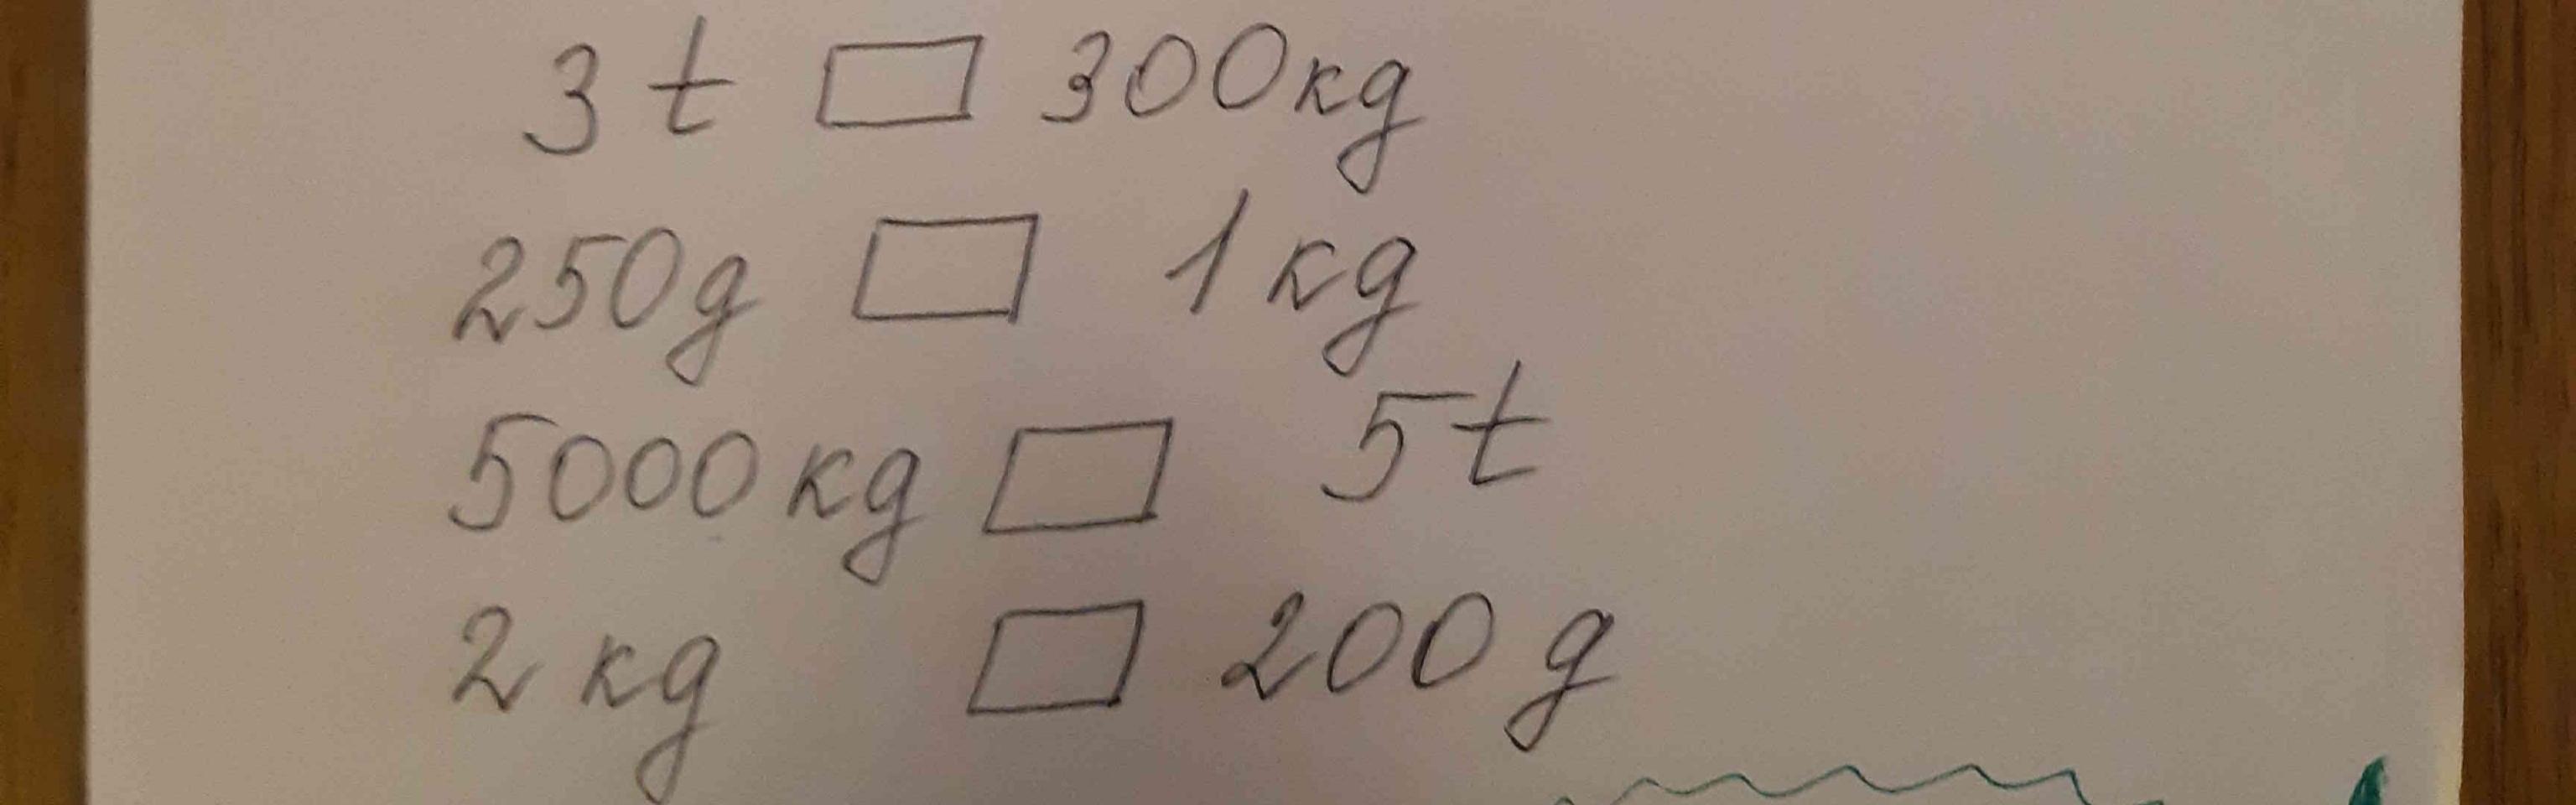 3 t □ 300 kg
250 g □ 1 kg
5000 kg □ 5 t
2 kg □ 200 g